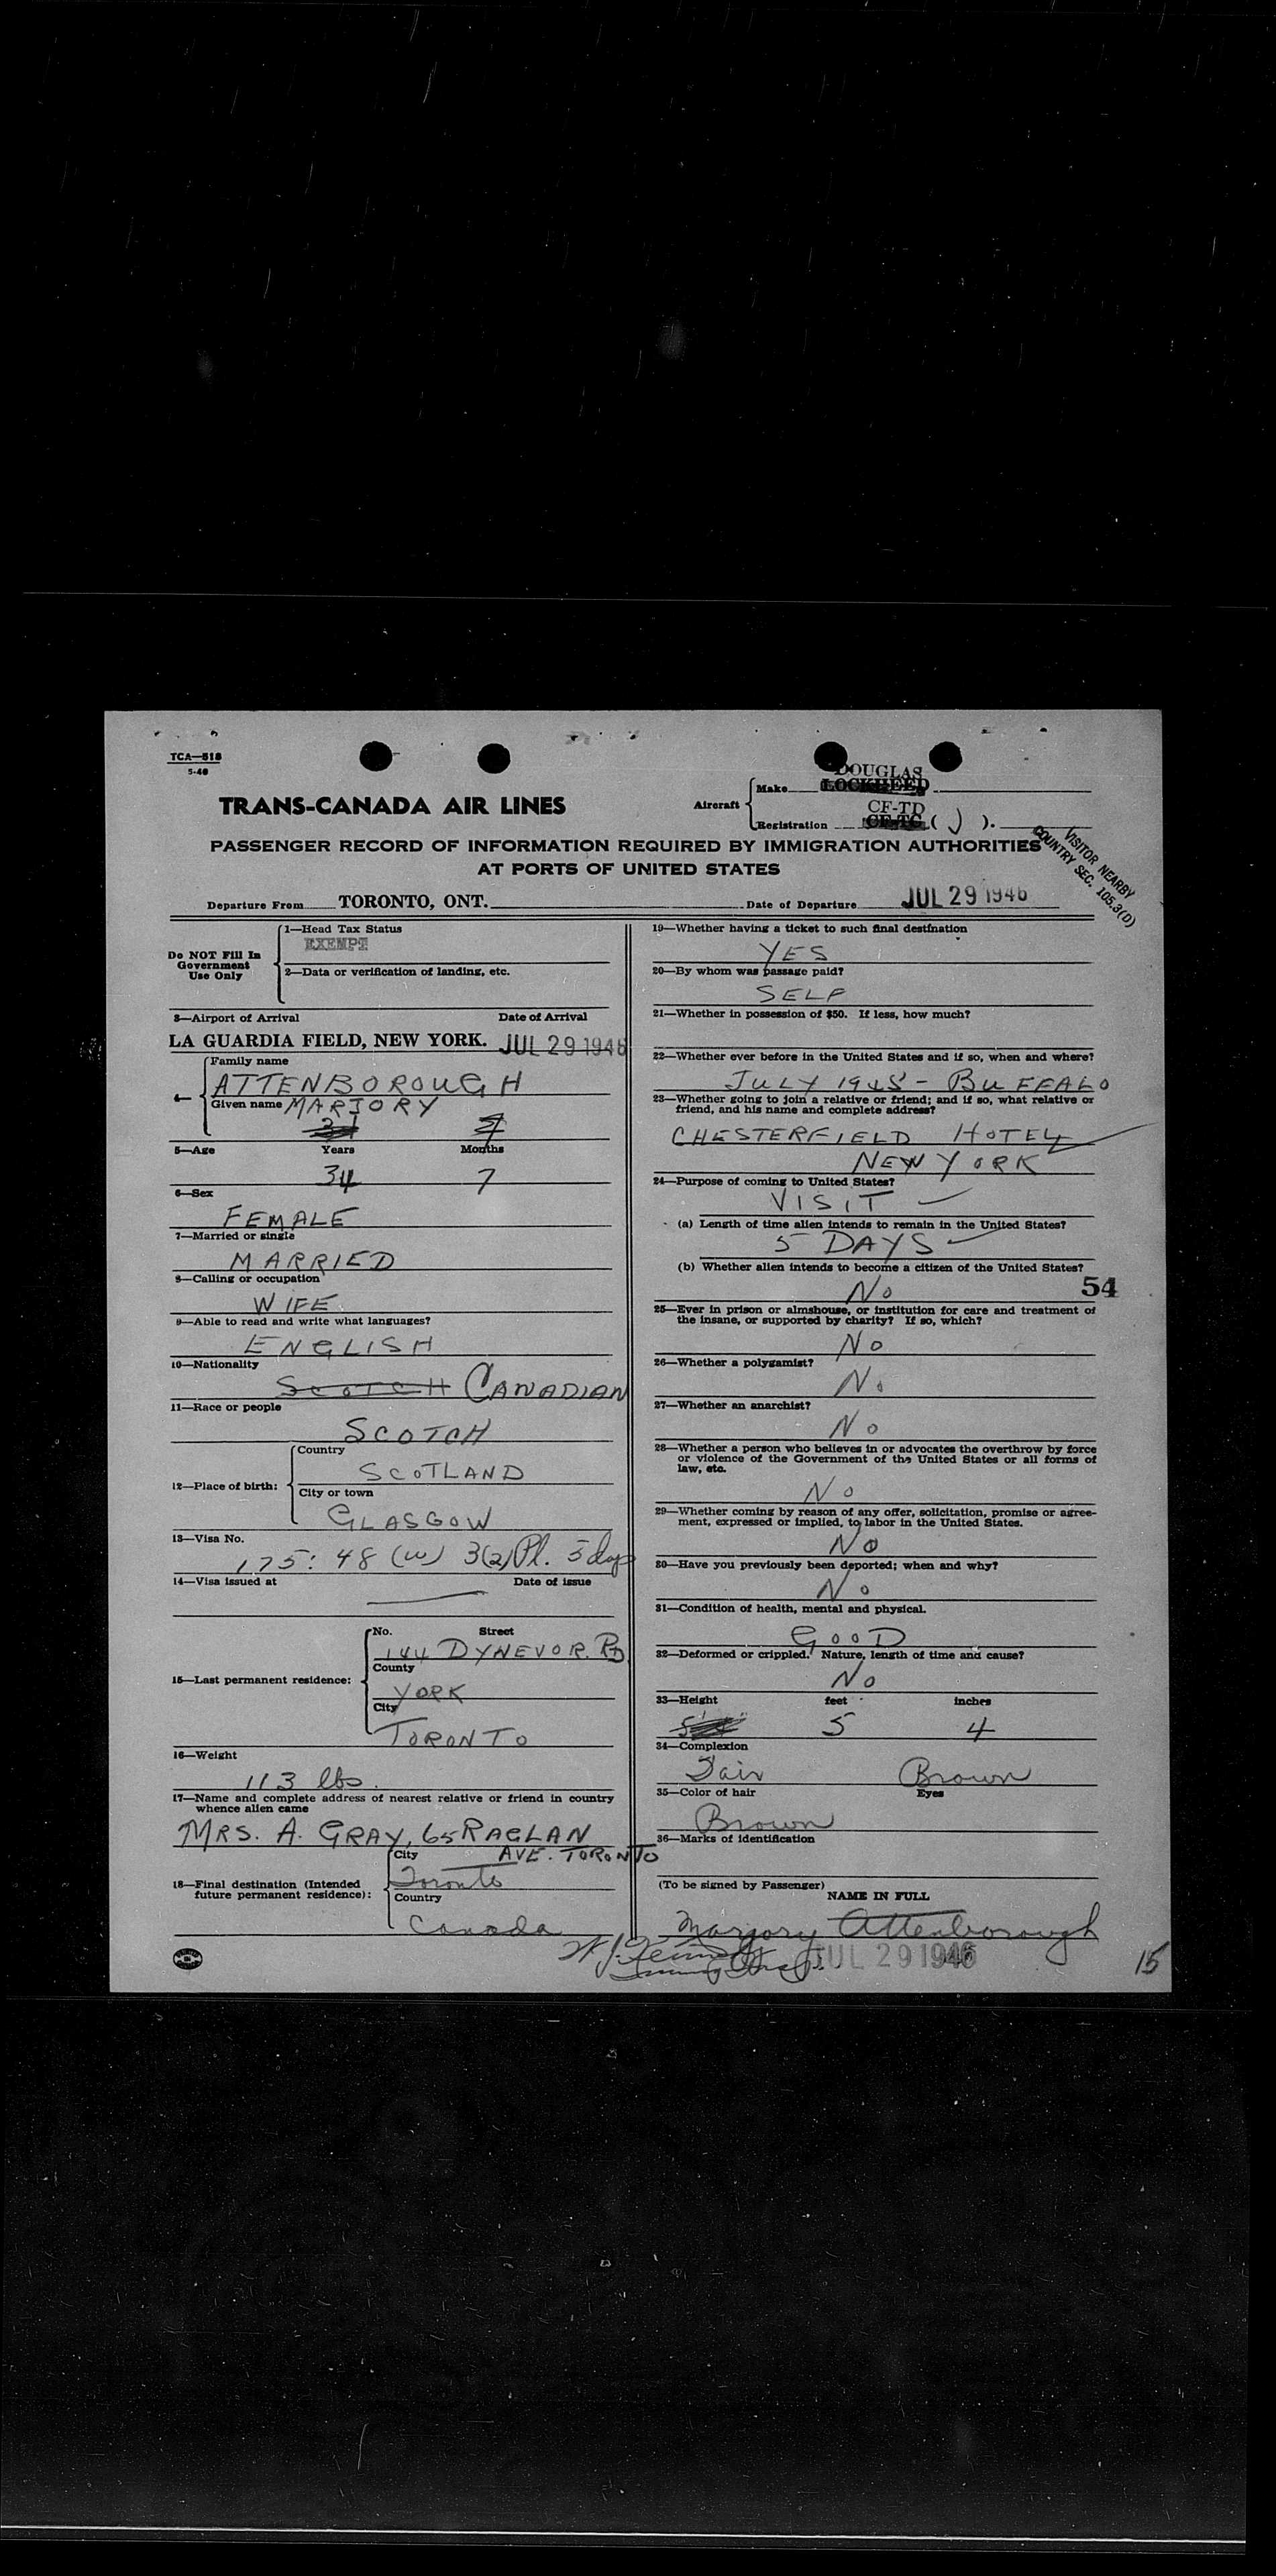 TCA—518
5-46
DOUGLAS
Make LOCKHEED
TRANS-CANADA AIR LINES
Aircraft
CF-TD
Registration CF-TC ( J ).
PASSENGER RECORD OF INFORMATION REQUIRED BY IMMIGRATION AUTHORITIES
AT PORTS OF UNITED STATES
VISITOR NEARBY
COUNTRY SEC. 105.3(D)
Departure From TORONTO, ONT. Date of Departure JUL 29 1946
Do NOT Fill In
Government
Use Only
1—Head Tax Status
EXEMPT
2—Data or verification of landing, etc.
3—Airport of Arrival Date of Arrival
LA GUARDIA FIELD, NEW YORK. JUL 29 1946
4—
Family name
ATTENBOROUGH
Given name MARJORY
31 7
5—Age Years Months
34 7
6—Sex
FEMALE
7—Married or single
MARRIED
8—Calling or occupation
WIFE
9—Able to read and write what languages?
ENGLISH
10—Nationality
SCOTCH CANADIAN
11—Race or people
SCOTCH
12—Place of birth:
Country
SCOTLAND
City or town
GLASGOW
13—Visa No.
175:48 (w) 3(2) Pl. 5 days
14—Visa issued at Date of issue
15—Last permanent residence:
No. Street
144 DYNEVOR. RD
County
YORK
City
TORONTO
16—Weight
113 lbs.
17—Name and complete address of nearest relative or friend in country
whence alien came
MRS. A. GRAY, 65 RAGLAN
AVE. TORONTO
18—Final destination (Intended
future permanent residence):
City
Toronto
Country
Canada
19—Whether having a ticket to such final destination
YES
20—By whom was passage paid?
SELF
21—Whether in possession of $50. If less, how much?
22—Whether ever before in the United States and if so, when and where?
JULY 1945 - BUFFALO
23—Whether going to join a relative or friend; and if so, what relative or
friend, and his name and complete address?
CHESTERFIELD HOTEL
NEW YORK
24—Purpose of coming to United States?
VISIT
(a) Length of time alien intends to remain in the United States?
5 DAYS
(b) Whether alien intends to become a citizen of the United States?
No 54
25—Ever in prison or almshouse, or institution for care and treatment of
the insane, or supported by charity? If so, which?
No
26—Whether a polygamist?
No
27—Whether an anarchist?
No
28—Whether a person who believes in or advocates the overthrow by force
or violence of the Government of the United States or all forms of
law, etc.
No
29—Whether coming by reason of any offer, solicitation, promise or agree-
ment, expressed or implied, to labor in the United States.
No
30—Have you previously been deported; when and why?
No
31—Condition of health, mental and physical.
GOOD
32—Deformed or crippled. Nature, length of time and cause?
No
33—Height feet inches
5 4
34—Complexion
Fair Brown
35—Color of hair Eyes
Brown
36—Marks of identification
(To be signed by Passenger)
NAME IN FULL
Marjory Attenborough
JUL 29 1946
15